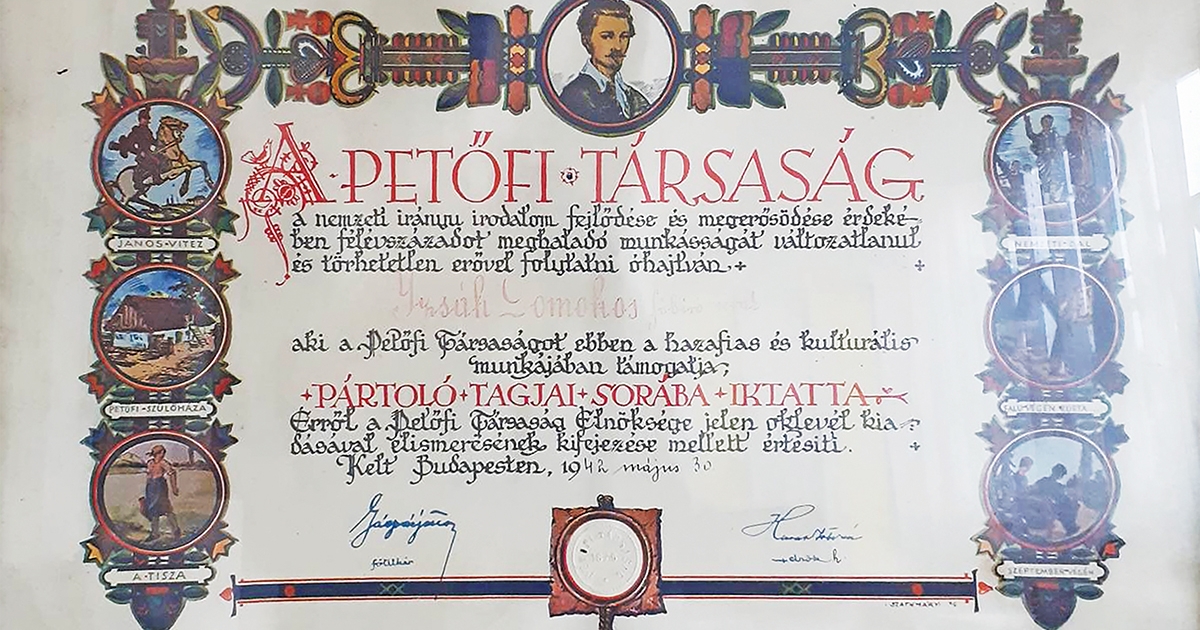 A PETŐFI TÁRSASÁG
a nemzeti irányu irodalom fejlődése és megerősödése érdeké-
ben félévszázadot meghaladó munkásságát változatlanul
és törhetetlen erővel folytatni óhajtván
Izsák Domokos
aki a Petőfi Társaságot ebben a hazafias és kulturális
munkájában támogatja,
PÁRTOLÓ TAGJAI SORÁBA IKTATTA
Erről a Petőfi Társaság Elnöksége jelen oklevél kia-
dásával elismerésének kifejezése mellett értesiti.
Kelt Budapesten, 1942 május 30
főtitkár
elnök h
JÁNOS-VITÉZ
PETŐFI-SZÜLŐHÁZA
A-TISZA
NEMZETI-DAL
SZEPTEMBER-VÉGÉN